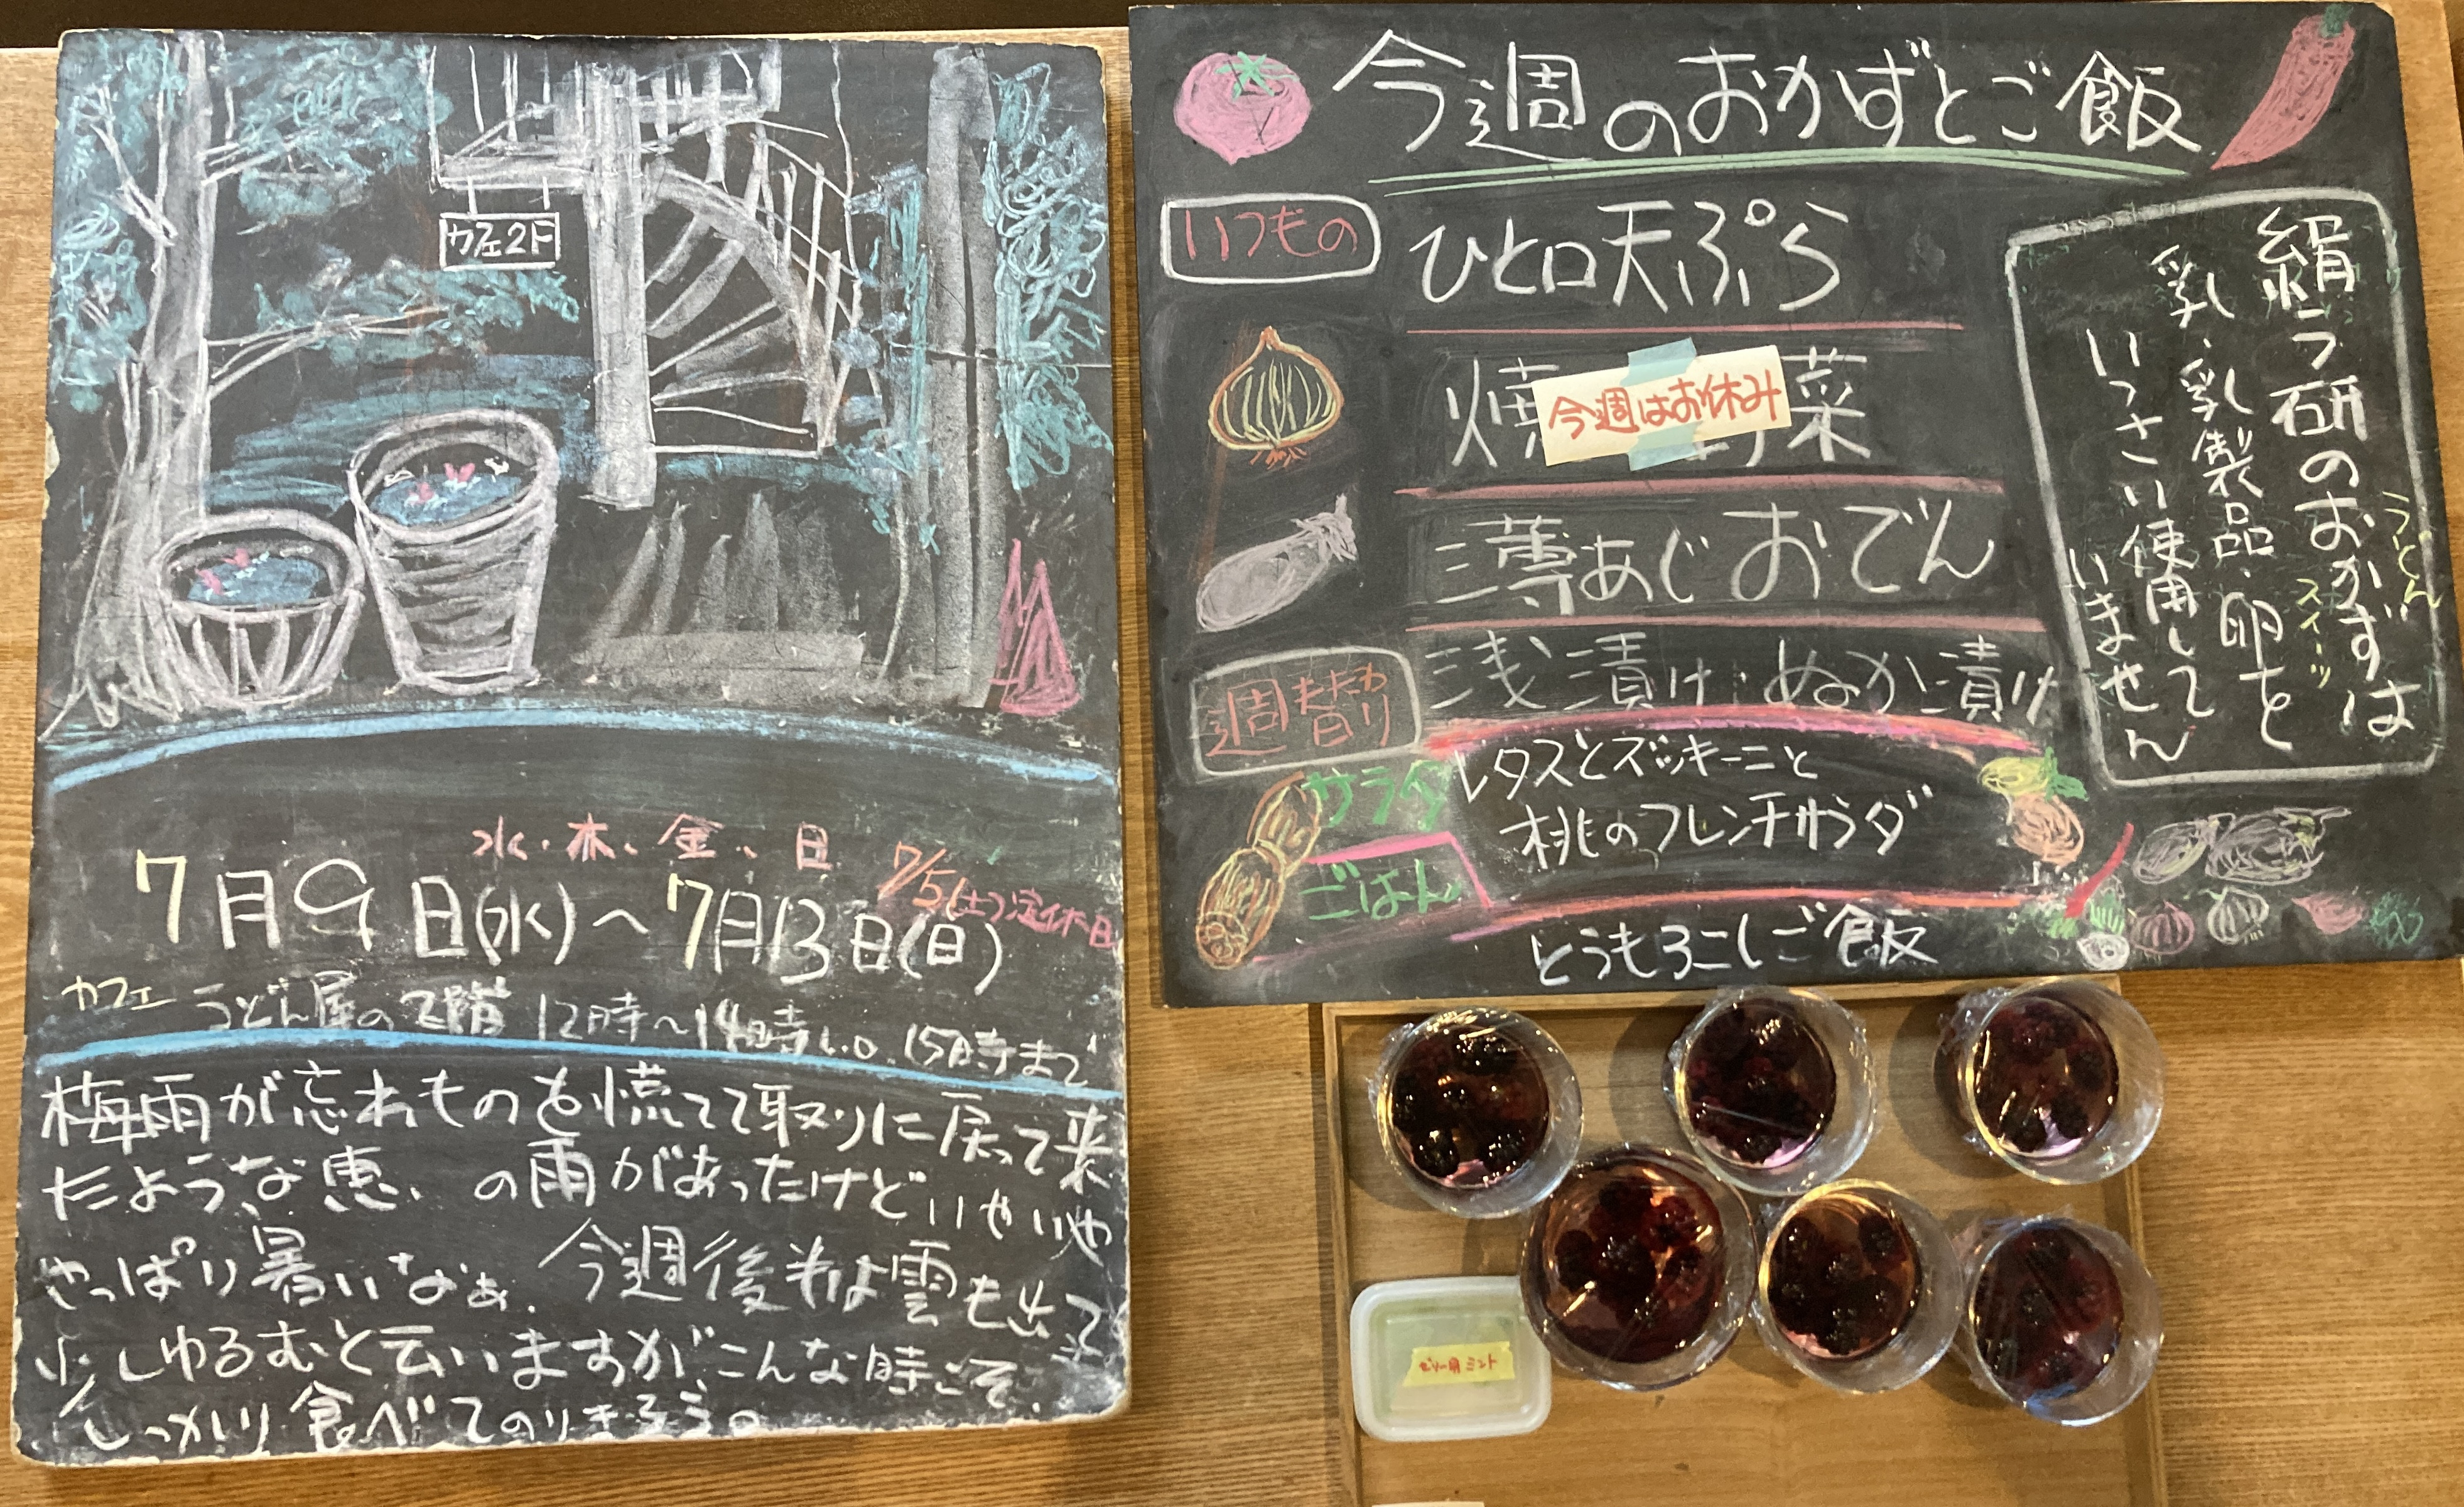 カフェ2F
水・木、金、日
7/5(土)定休日
7月9日(水)〜7月13日(日)
カフェ うどん屋の2階 12時〜14時L.O. 15時まで
梅雨が忘れものを慌てて取りに戻って来
たような恵みの雨があったけどいやいや
やっぱり暑いなぁ. 今週後半は雲も出て
少しゆるむと云いますが、こんな時こそ、
しっかり食べてのりきろう。
今週のおかずとご飯
いつもの
ひと口天ぷら
焼 菜
今週はお休み
薄あじおでん
浅漬け・ぬか漬け
週替わり
サラダ
レタスとズッキーニと
桃のフレンチサラダ
ごはん
とうもろこしご飯
絹ラ研のおかずは
うどん
スイーツ
乳・乳製品・卵を
いっさい使用して
いません
ゼリー用ミント